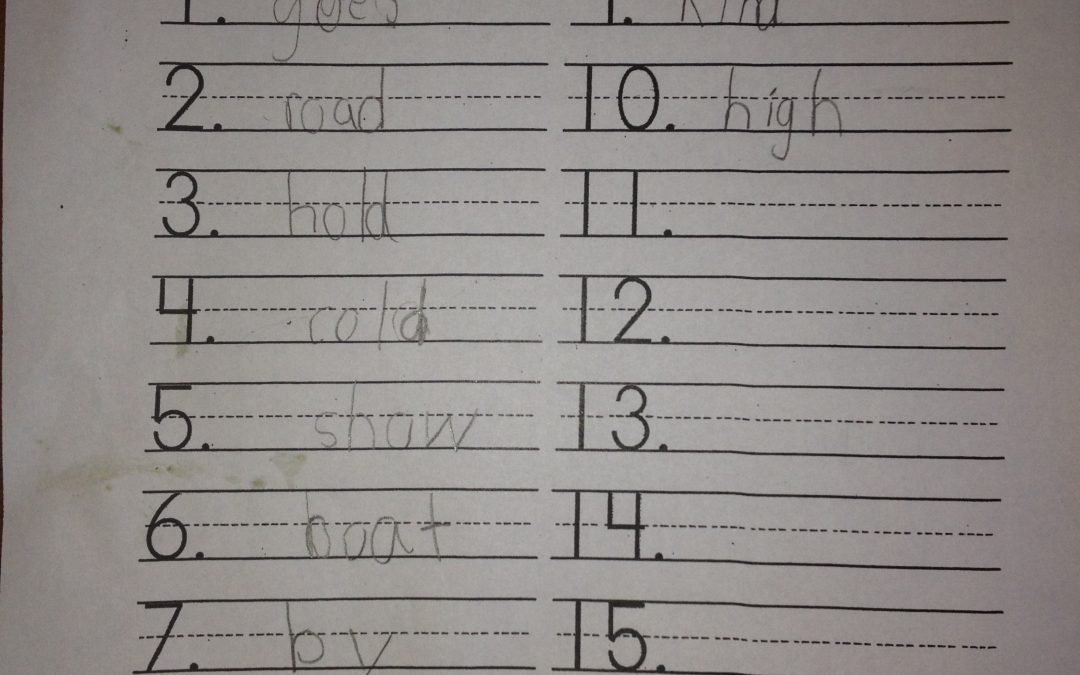 1. goes
2. road
3. hold
4. cold
5. show
6. boat
7. by
9. kind
10. high
11.
12.
13.
14.
15.